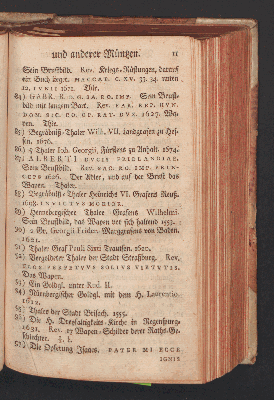 und anderer Müntzen. 11
Sein Brustbild. Rev. Kriegs-Rüstungen, darauf
ein Buch liegt. MACCAB. C. XV. 33. 34. unten
12. IVNII 1672. Thlr.
84) GABR. D. G. SA. RO. IMP. Sein Brust-
bild mit langem Bart. Rev. PAR. REP. HVN.
DOM. SIC. CO. OP. RAT. DVX. 1627. Wa-
pen. Thlr.
85) Begräbniß-Thaler Wilh. VII. Landgrafen zu Hes-
sen. 1670.
86) Thaler Joh. Georgii, Fürstens zu Anhalt. 1674.
87) ALBERTI DVCIS FRIDLANDIAE.
Sein Brustbild. Rev. SAC. RO. IMP. PRIN-
CEPS 1626. Der Adler, und auf der Brust das
Wapen. Thaler.
88) Begräbniß-Thaler Heinrichs VI. Grafens Reuß.
1698. INVICTVS MORIOR.
89) Hennebergischer Thaler Grafens Wilhelmi.
Sein Brustbild, das Wapen vor sich haltend 1552.
90) 2 Gr. Georgii Frider. Marggrafens von Baden.
1621.
91) Thaler Graf Pauli Sixti Trautson. 1620.
92) Vergoldeter Thaler der Stadt Straßburg. Rev.
FLOS PERPETVVS SOLIVS VIRTVTIS.
Das Wapen.
93) Ein Goldgl. unter Rud. II.
94) Nürnbergischer Goldgl. mit dem H. Laurentio.
1612.
95) Thaler der Stadt Brisach. 1555.
96) Die H. Dreyfaltigkeits-Kirche in Regenspurg
1631. Rev. 17 Wapen-Schilder derer Raths-Ge-
schlechter.
97) Die Opferung Isaacs. PATER MI ECCE
IGNIS